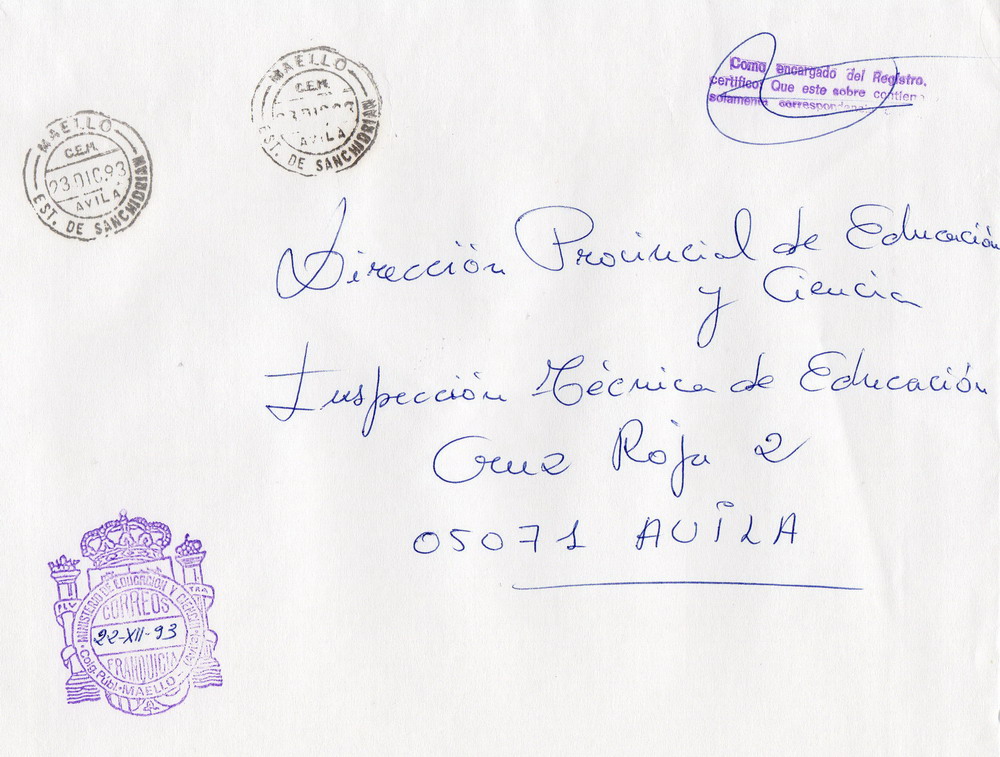 MAELLO
C.E.M.
23 DIC.93
AVILA
EST. DE SANCHIDRIAN
MAELLO
C.E.M.
23 DIC.93
AVILA
EST. DE SANCHIDRIAN
Como encargado del Registro,
certifico: Que este sobre contiene
solamente correspondencia
Dirección Provincial de Educación
y Ciencia
Inspección Técnica de Educación
Cruz Roja 2
05071 AVILA
MINISTERIO DE EDUCACION Y CIENCIA
CORREOS
22-XII-93
FRANQUICIA
Coleg. Publ. MAELLO